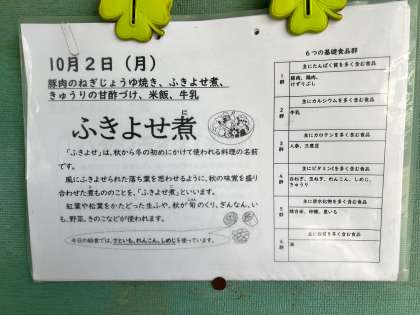 10月2日(月)
豚肉のねぎじょうゆ焼き、ふきよせ煮、
きゅうりの甘酢づけ、米飯、牛乳
ふきよせ煮
に
「ふきよせ」は、秋から冬の初めにかけて使われる料理の名前
です。
風にふきよせられた落ち葉を思わせるように、秋の味覚を盛り
合わせた煮もののことを、「ふきよせ煮」といいます。
紅葉や松葉をかたどった生ふや、秋が旬のくり、ぎんなん、い
も、野菜、きのこなどが使われます。
今日の給食では、さといも、れんこん、しめじを使っています。
6つの基礎食品群
1群
主にたんぱく質を多く含む食品
豚肉、鶏肉、
けずりぶし
2群
主にカルシウムを多く含む食品
牛乳
3群
主にカロテンを多く含む食品
人参、
4群
主にビタミンCを多く含む食品
白ねぎ、玉ねぎ、れんこん、しめじ、
きゅうり
5群
主に炭水化物を多く含む食品
精白米、砂糖、里いも
6群
主に脂肪を多く含む食品
油